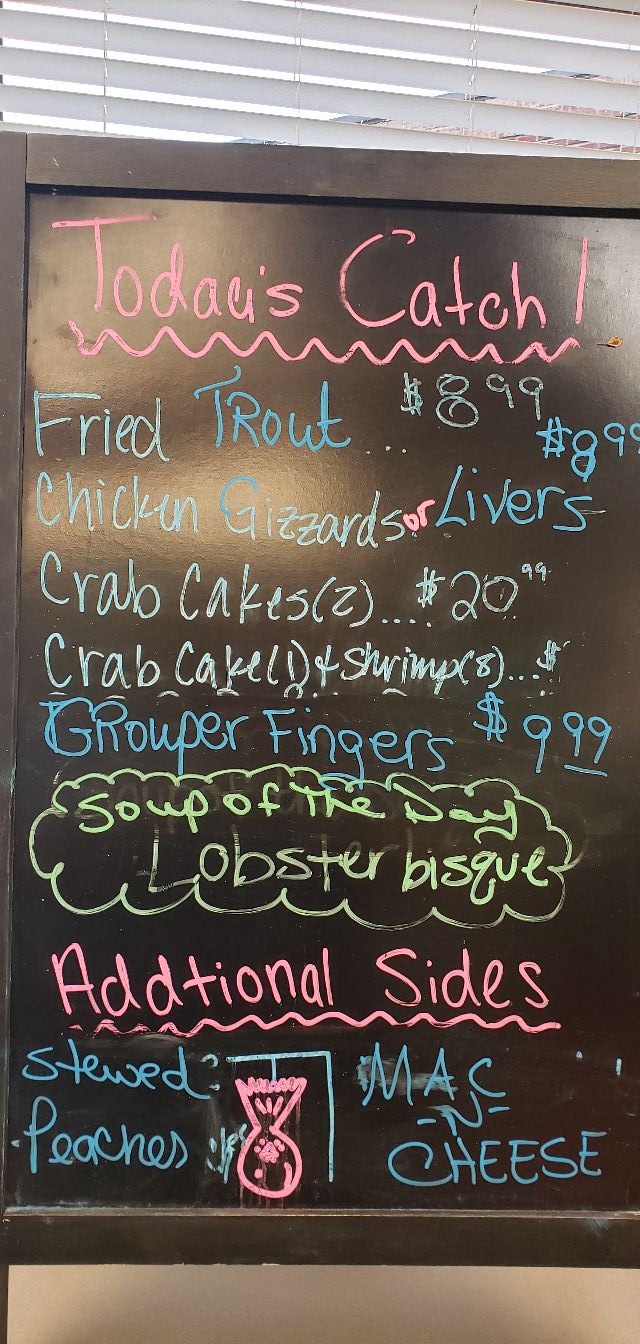 Today's Catch!
Fried TRout ... $8.99
$8.99
Chicken Gizzards or Livers
Crab Cakes(2).... $20.99
Crab Cake(1) & Shrimp(8)...$
GRouper Fingers $9.99
Soup of The Day
Lobster bisque
Addtional Sides
Stewed Peaches
MAC
-N-
CHEESE